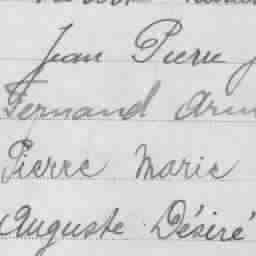 Jean Pierre
Fernand
Pierre Marie
Auguste Désiré